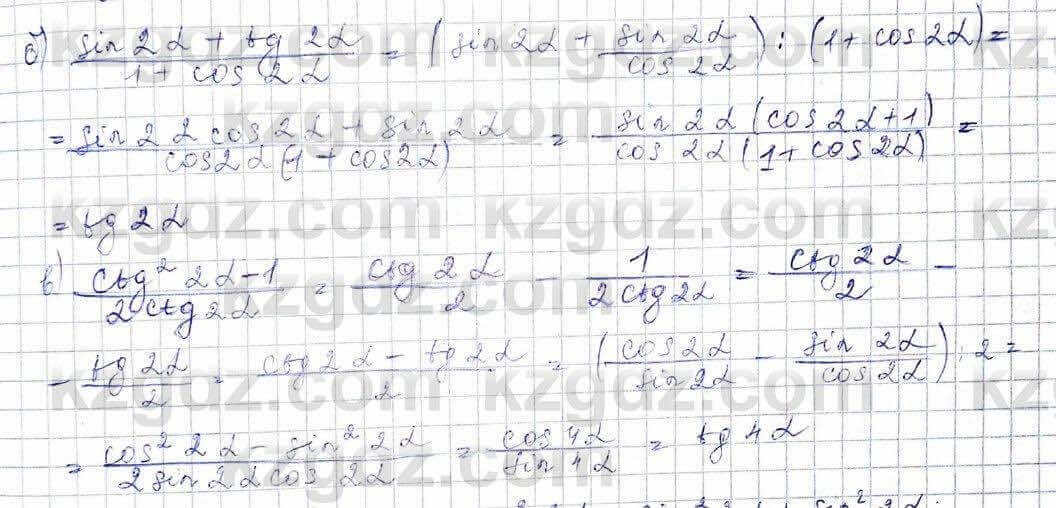 б) (sin 2α + tg 2α)/(1 + cos 2α) = (sin 2α + sin 2α/cos 2α) : (1 + cos 2α) =
= (sin 2 2 cos 2α + sin 2α)/(cos2α (1 + cos2α)) = (sin 2α (cos 2α + 1))/(cos 2α (1 + cos 2α)) =
= tg 2α
в) (ctg² 2α - 1)/(2 ctg 2α) = ctg 2α/2 - 1/(2 ctg 2α) = ctg 2α/2 -
- tg 2α/2 = (ctg 2α - tg 2α)/2 = (cos 2α/sin 2α - sin 2α/cos 2α) : 2 =
= (cos² 2α - sin² 2α)/(2 sin 2α cos 2α) = cos 4α/sin 4α = tg 4α
kzgdz.com